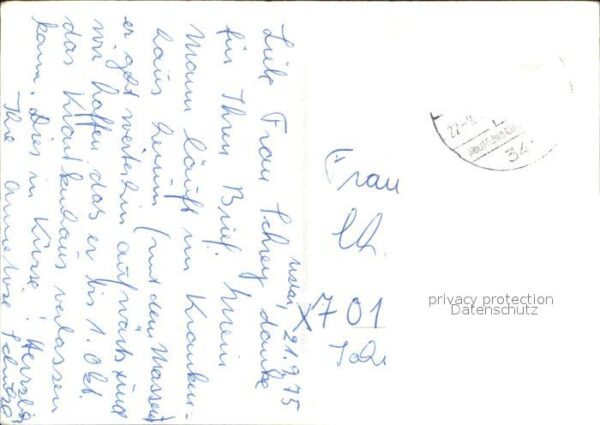 21.9.75
Liebe Frau Schrey, danke
für Ihren Brief. Mein
Mann läuft im Kranken-
haus herum (mit dem
er geht weiterhin aufwärts und
wir hoffen, das er bis 1. Okt.
das Krankenhaus verlassen
kann. Dies in Kürze! Herzlich
Ihre Anneliese
Frau
X701
privacy protection
Datenschutz
22-9.
34